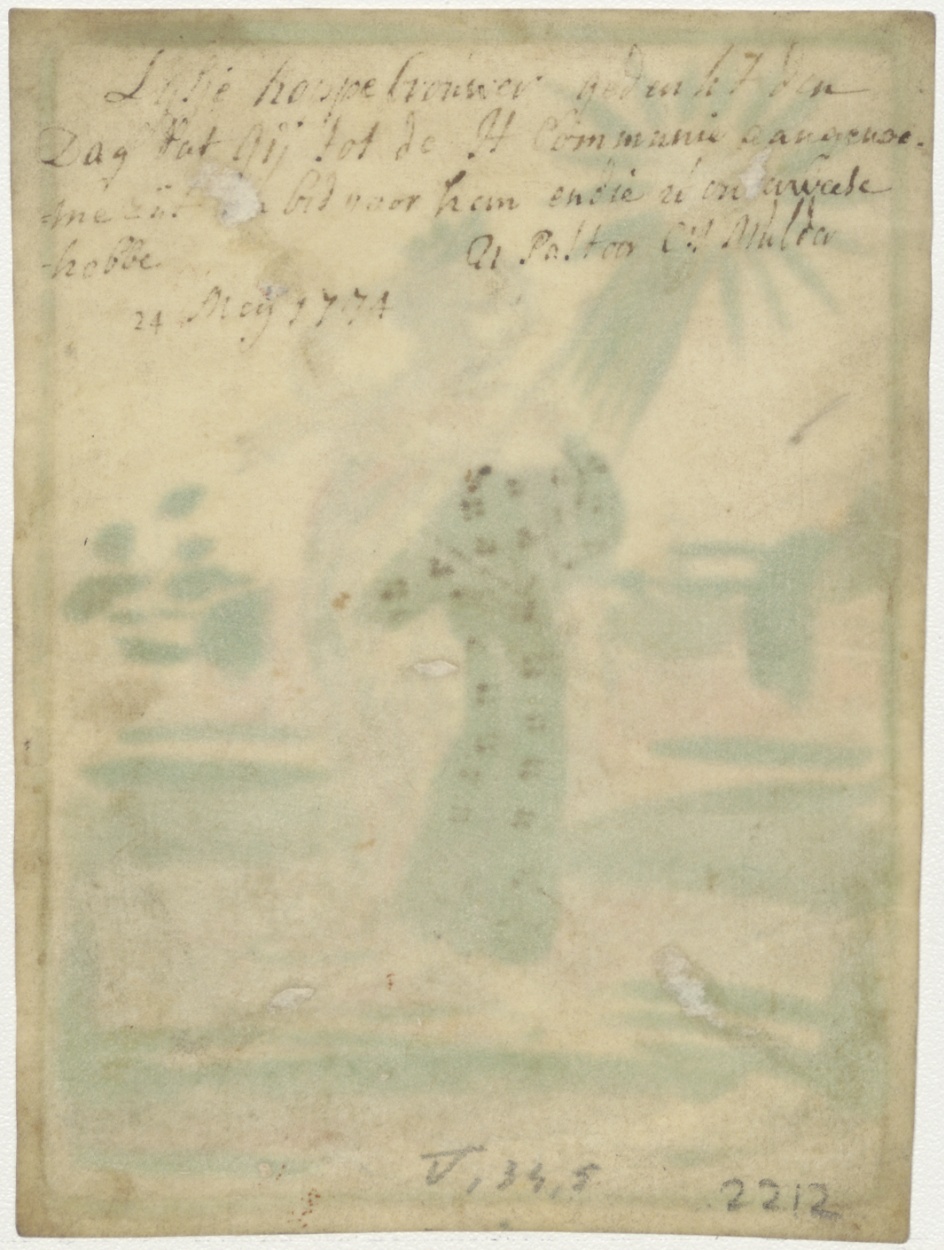 Lijsje hoppebrouwer gedenkt den
Dag dat Gij tot de H Communie aangeno-
me zijt bid voor hem en die u onderweese
hebbe. U Pastoor Mulder
24 Meij 1774
V, 34, 5
2212